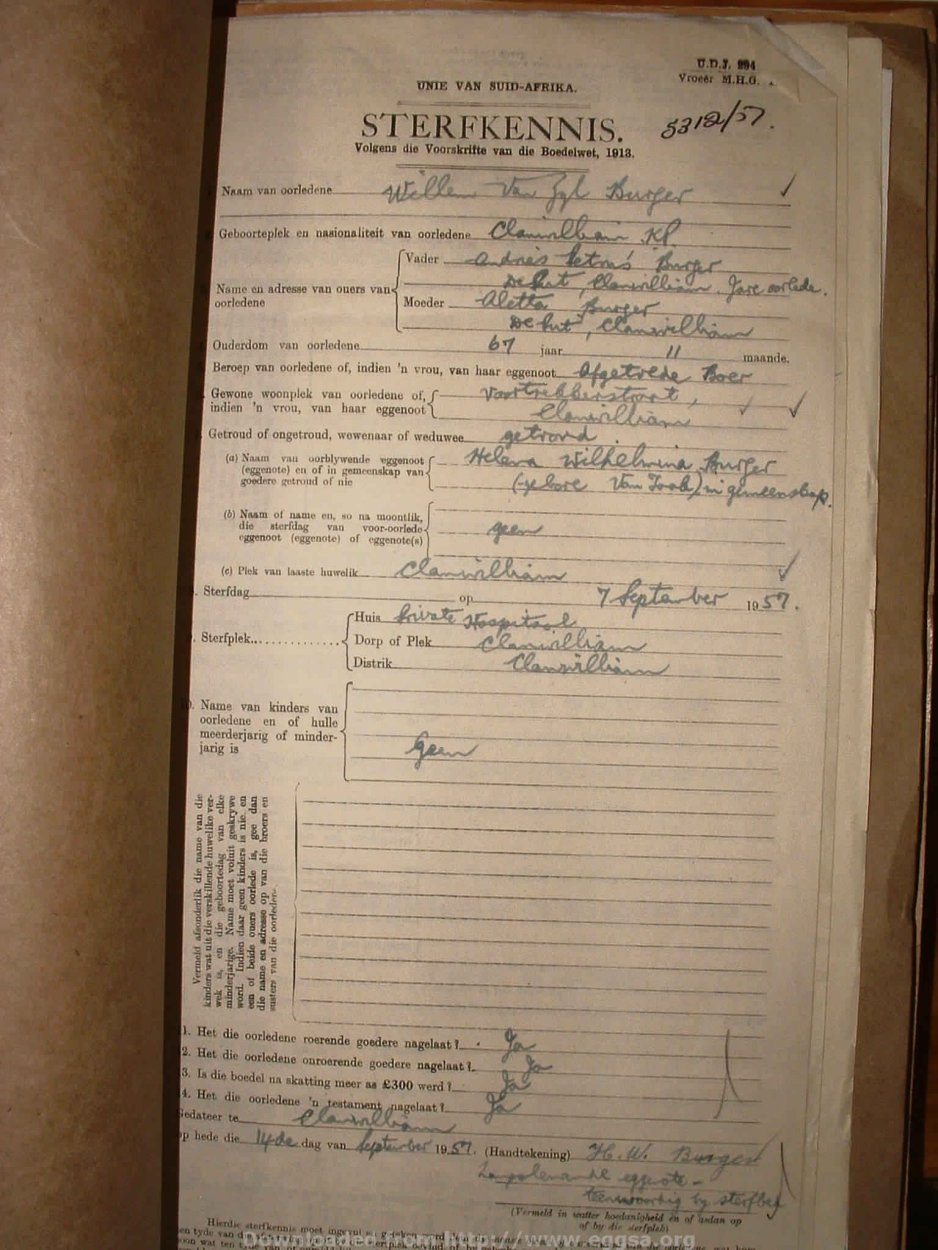 U.D.J. 294
Vroeër M.H.G.
UNIE VAN SUID-AFRIKA.
STERFKENNIS.
5312/57.
Volgens die Voorskrifte van die Boedelwet, 1913.
Naam van oorledene Willem Van Zyl Burger
Geboorteplek en nasionaliteit van oorledene Clanwilliam KP.
Name en adresse van ouers van oorledene
Vader Andries Petrus Burger
De Hut, Clanwilliam. Jare oorlede.
Moeder Aletta Burger
De Hut, Clanwilliam
Ouderdom van oorledene 67 jaar 11 maande.
Beroep van oorledene of, indien 'n vrou, van haar eggenoot Afgetrede Boer
Gewone woonplek van oorledene of, Voortrekkerstraat,
indien 'n vrou, van haar eggenoot Clanwilliam
Getroud of ongetroud, wewenaar of weduwee getroud.
(a) Naam van oorblywende eggenoot Helena Wilhelmina Burger
(eggenote) en of in gemeenskap van
goedere getroud of nie (gebore Van Zyl) in gemeenskap.
(b) Naam of name en, so na moontlik,
die sterfdag van voor-oorlede geen
eggenoot (eggenote) of eggenote(s)
(c) Plek van laaste huwelik Clanwilliam
Sterfdag op 7 September 1957.
Sterfplek
Huis Private Hospitaal
Dorp of Plek Clanwilliam
Distrik Clanwilliam
Name van kinders van
oorledene en of hulle
meerderjarig of minder-
jarig is Geen
Vermeld afsonderlik die name van die
kinders wat uit die verskillende huwelike ver-
wek is, en die geboortedag van elke
minderjarige. Name moet voluit geskrywe
word. Indien daar geen kinders is nie en
een of beide ouers oorlede is, gee dan
die name en adresse op van die broers en
susters van die oorledene.
1. Het die oorledene roerende goedere nagelaat? Ja
2. Het die oorledene onroerende goedere nagelaat? Ja
3. Is die boedel na skatting meer as £300 werd? Ja
4. Het die oorledene 'n testament nagelaat? Ja
Gedateer te Clanwilliam
op hede die 14de dag van September 1957. (Handtekening) H. W. Burger
eggenote -
teenwoordig by sterfbed
(Vermeld in watter hoedanigheid en of aldan op
of by die sterfplek)
Hierdie sterfkennis moet ingevul
Downloaded from http://www.eggsa.org